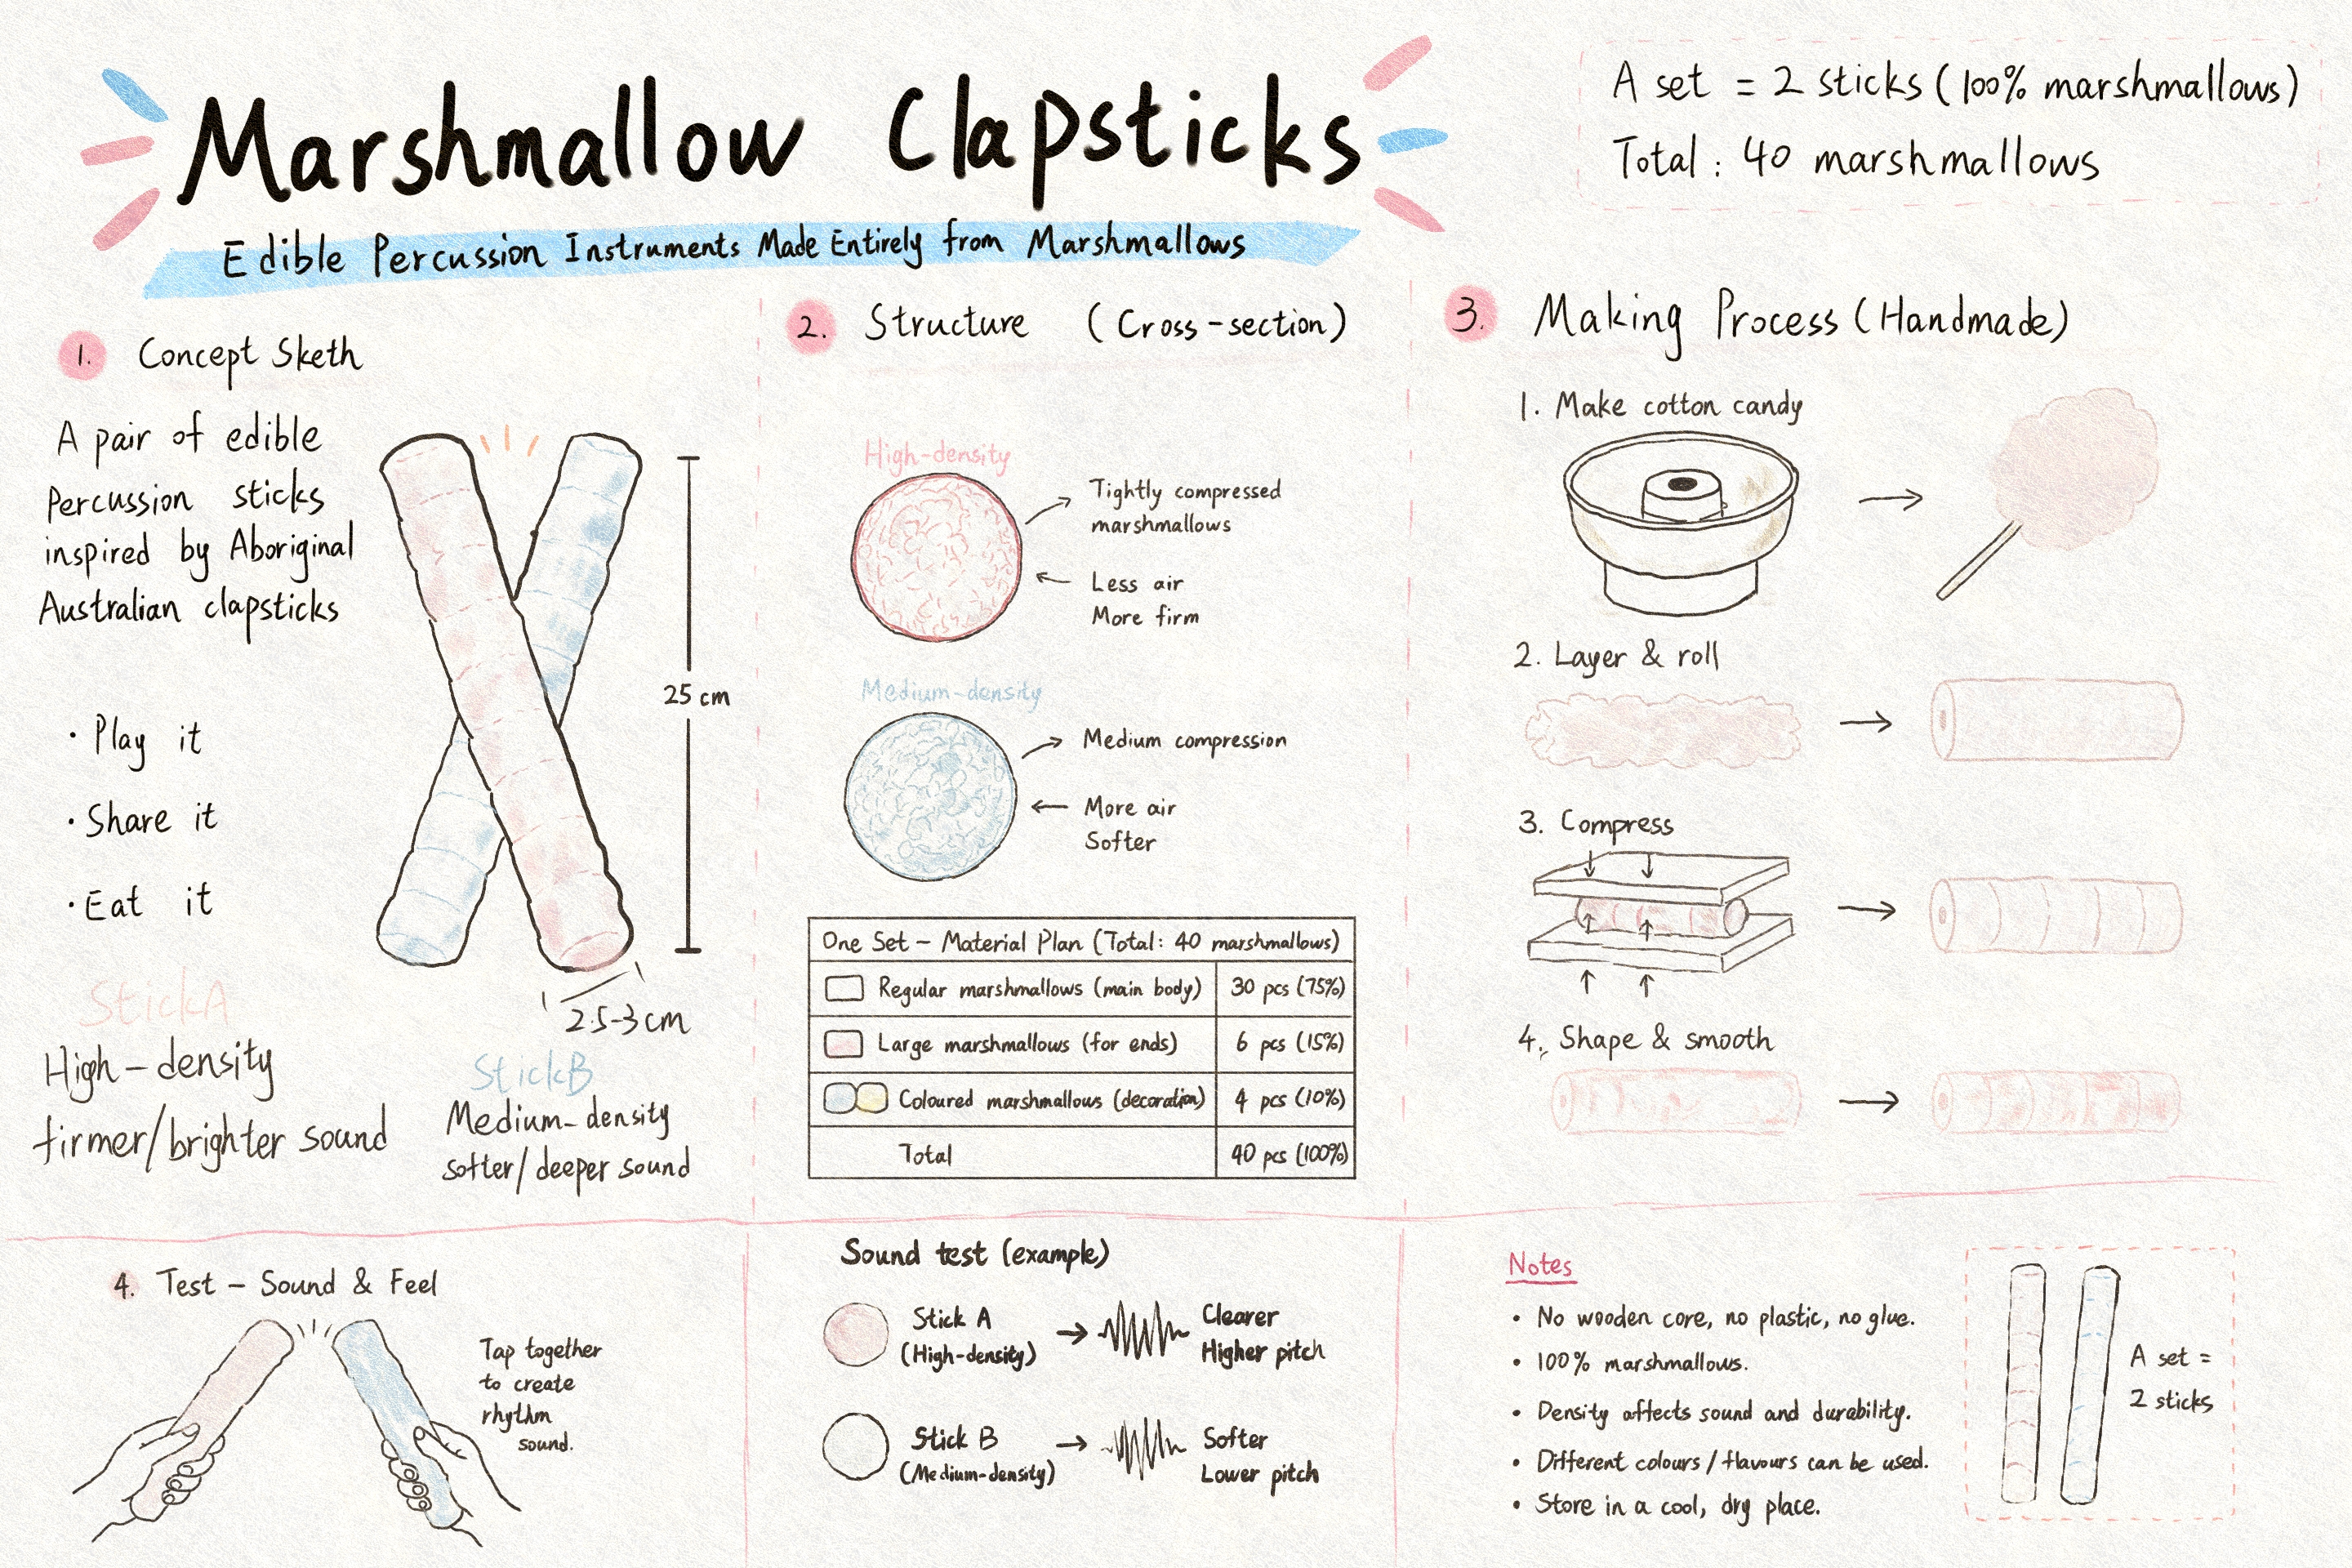 Marshmallow Clapsticks
Edible Percussion Instruments Made Entirely from Marshmallows
A set = 2 sticks (100% marshmallows)
Total : 40 marshmallows
1. Concept Sketh
A pair of edible
Percussion sticks
inspired by Aboriginal
Australian clapsticks
• Play it
• Share it
• Eat it
25 cm
2.5-3cm
StickA
High-density
firmer/brighter sound
StickB
Medium-density
softer/deeper sound
2. Structure (Cross-section)
High-density
Tightly compressed
marshmallows
Less air
More firm
Medium-density
Medium compression
More air
Softer
One Set – Material Plan (Total: 40 marshmallows)
Regular marshmallows (main body) 30 pcs (75%)
Large marshmallows (for ends) 6 pcs (15%)
Coloured marshmallows (decoration) 4 pcs (10%)
Total 40 pcs (100%)
3. Making Process (Handmade)
1. Make cotton candy
2. Layer & roll
3. Compress
4. Shape & smooth
4. Test – Sound & Feel
Tap together
to create
rhythm
sound.
Sound test (example)
Stick A
(High-density)
Clearer
Higher pitch
Stick B
(Medium-density)
Softer
Lower pitch
Notes
• No wooden core, no plastic, no glue.
• 100% marshmallows.
• Density affects sound and durability.
• Different colours/flavours can be used.
• Store in a cool, dry place.
A set =
2 sticks